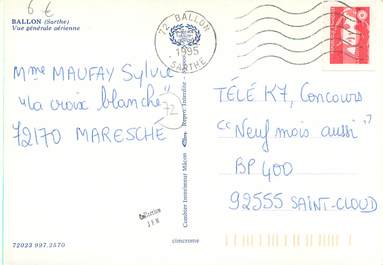 6 €
BALLON (Sarthe)
Vue générale aérienne
72 BALLON
1995
SARTHE
Mme MAUFAY Sylvie
"La croix blanche"
72170 MARESCHÉ
72
TÉLÉ K7, Concours
"Neuf mois aussi"
BP 400
92555 SAINT-CLOUD
Combier Imprimeur Mâcon
72023 997.2570
cimcrome